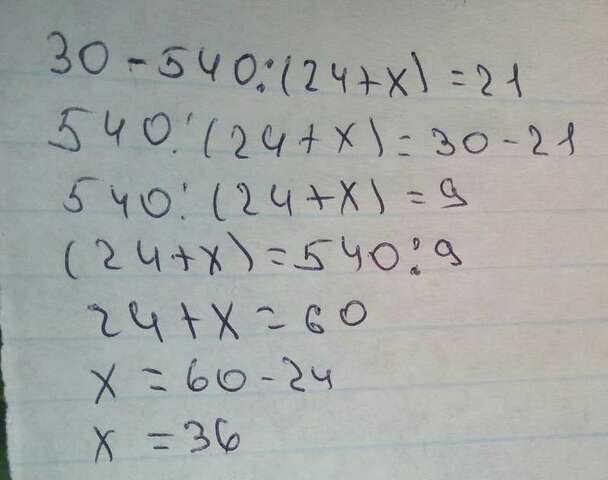 30 - 540:(24+x) = 21
540:(24+x) = 30 - 21
540:(24+x) = 9
(24+x) = 540:9
24+x = 60
x = 60 - 24
x = 36